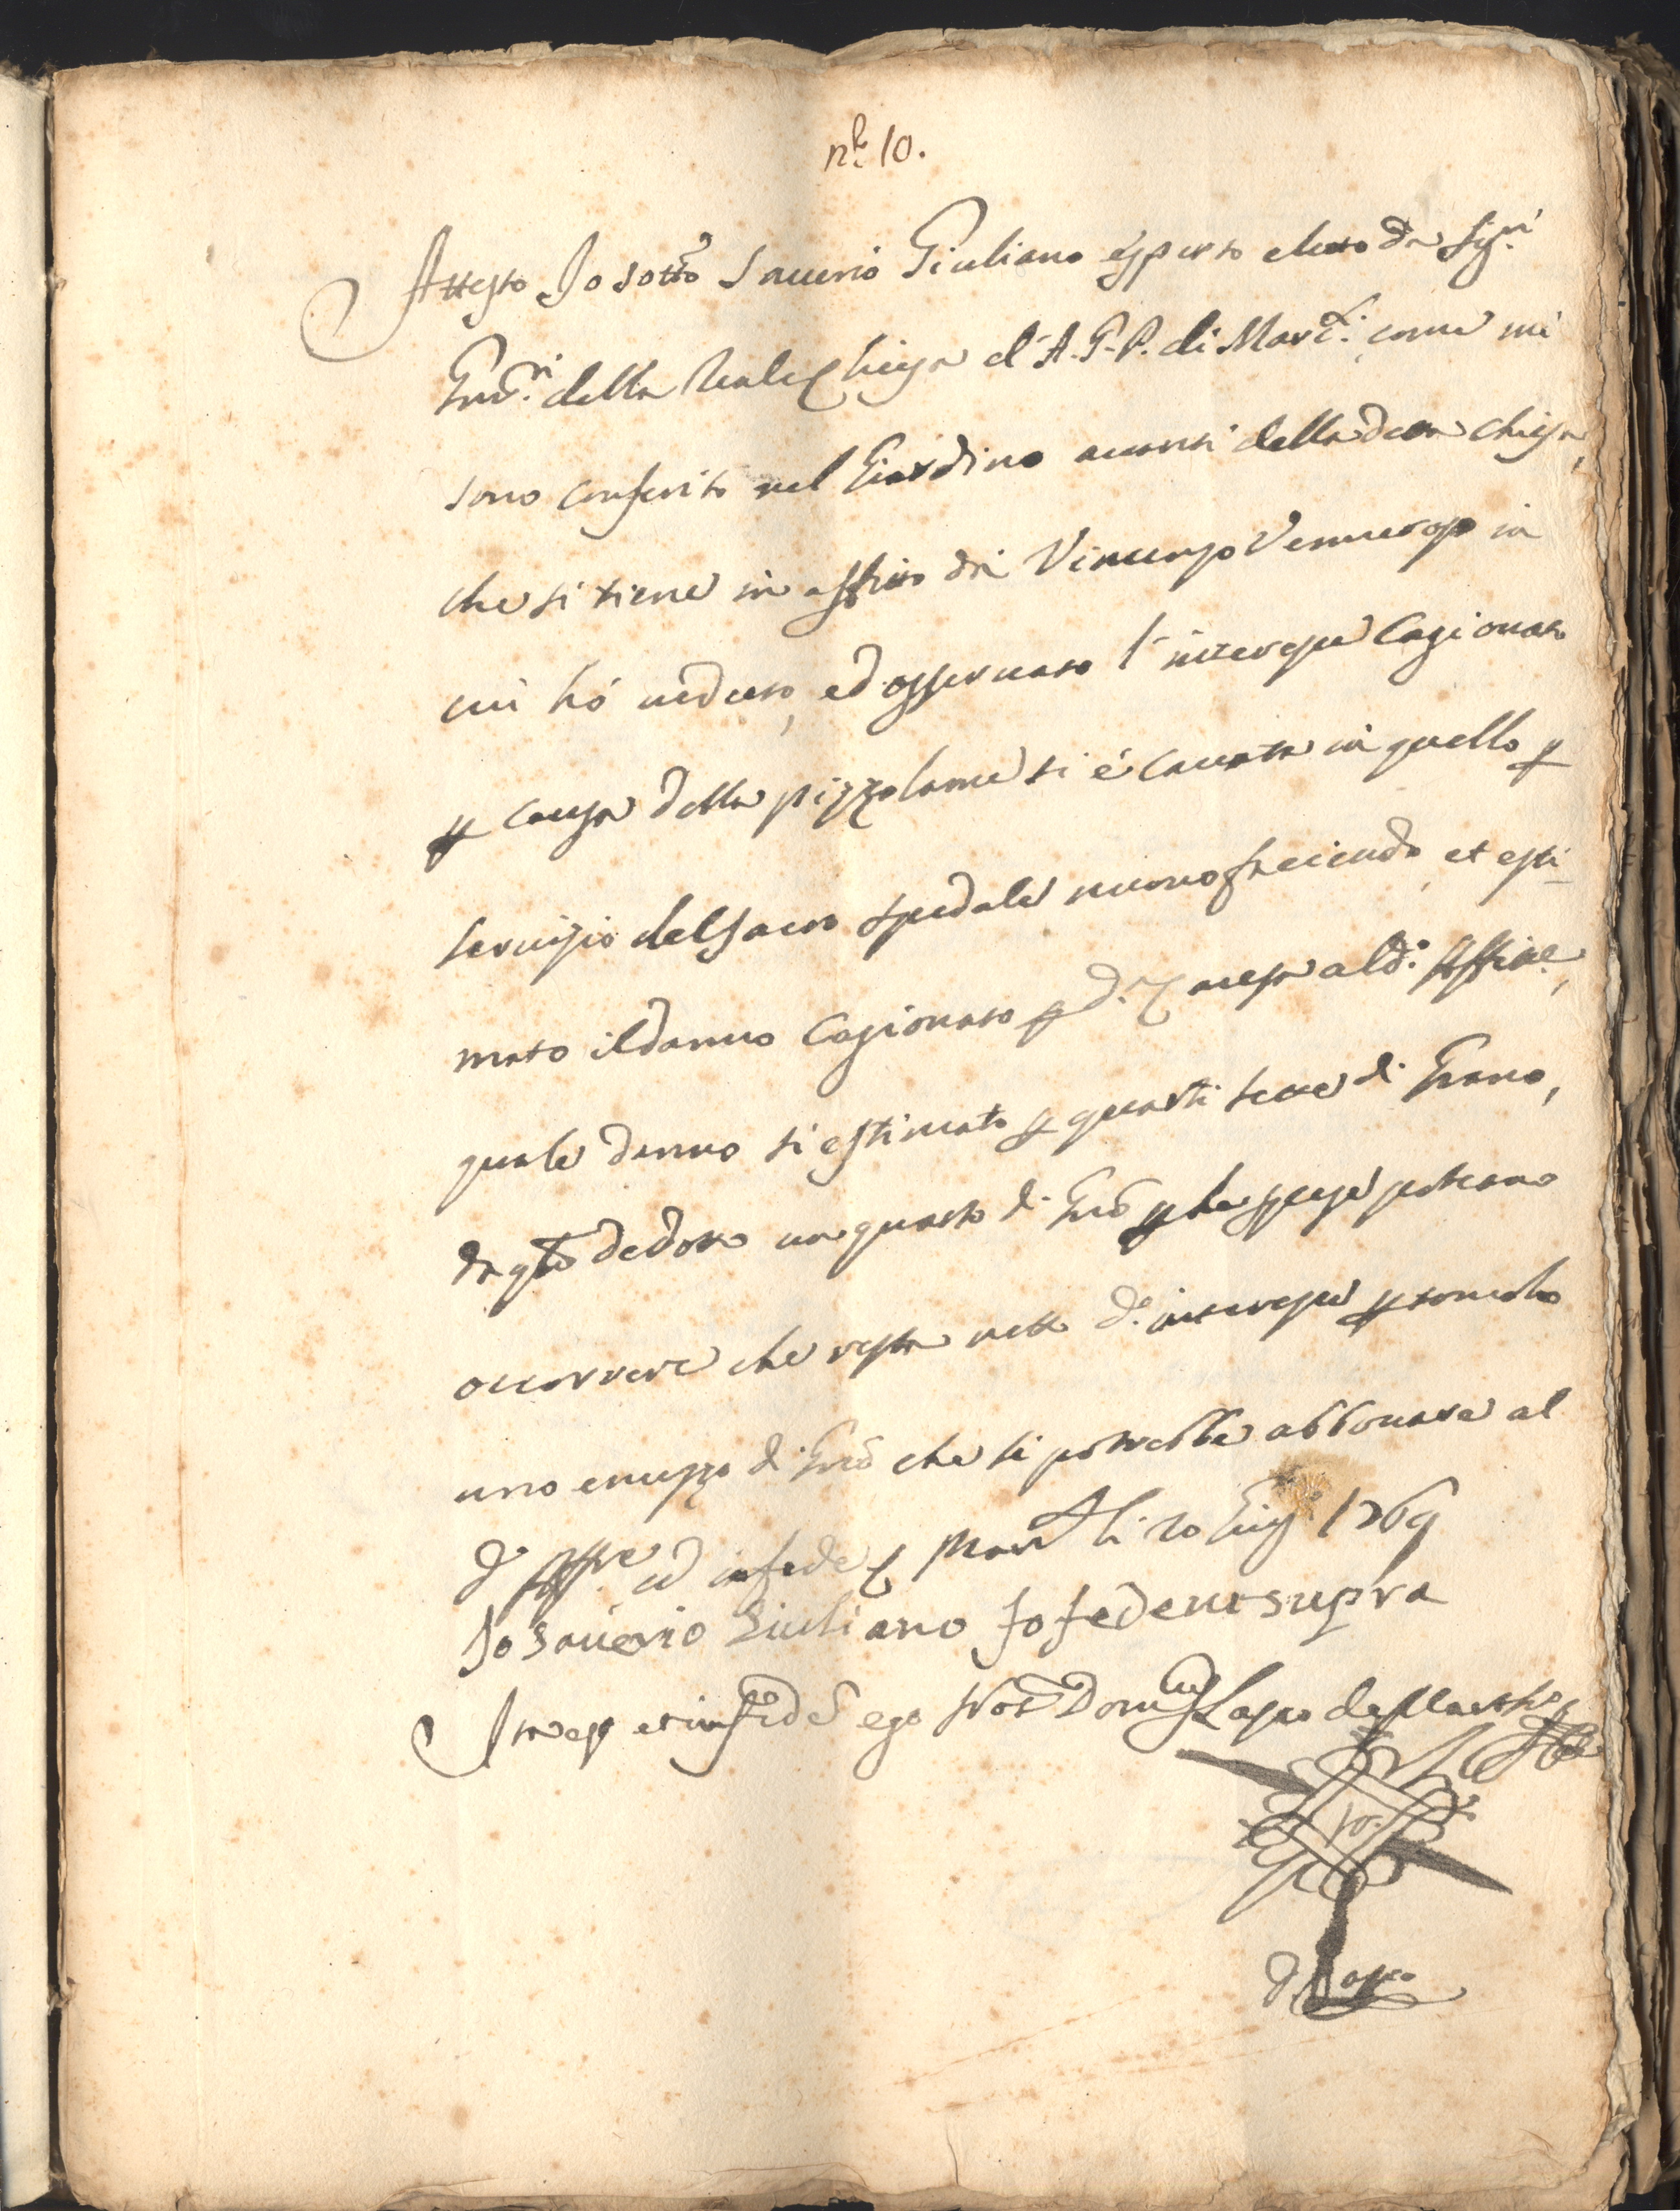 n.º 10.
Attesto Io sotto Saverio Giuliano esperto eletto da Sig.ri
Gov.ri della Reale Chiesa d' A. G. P. di Mart.ª come mi
sono conferito nel Giardino avanti della detta chiesa,
che si tiene in affitto da Vincenzo in
cui hó veduto, ed osservato l'interesse Cagionato
p causa della pizzolame si é cavata in quello p
servizio del sacro spedale nuovo faciendo, et esti-
mato il danno Cagionato p d.ª causa al d.º Affitt.e,
quale danno si estimato p quarti sette di Grano,
da q.to dedotto un quarto di Gro p le spese potrano
occorrere che resta netto d.º interesse p tomolo
uno e mezzo di Gro che si potrebbe abbonare al
d.º Aff.re ed in fede Mart.ª li 20 Giug.º 1769
Io Saverio Giuliano fo fede ut supra
Ita est et in fidem ego Not. Dom.cus Lapro de Marth.